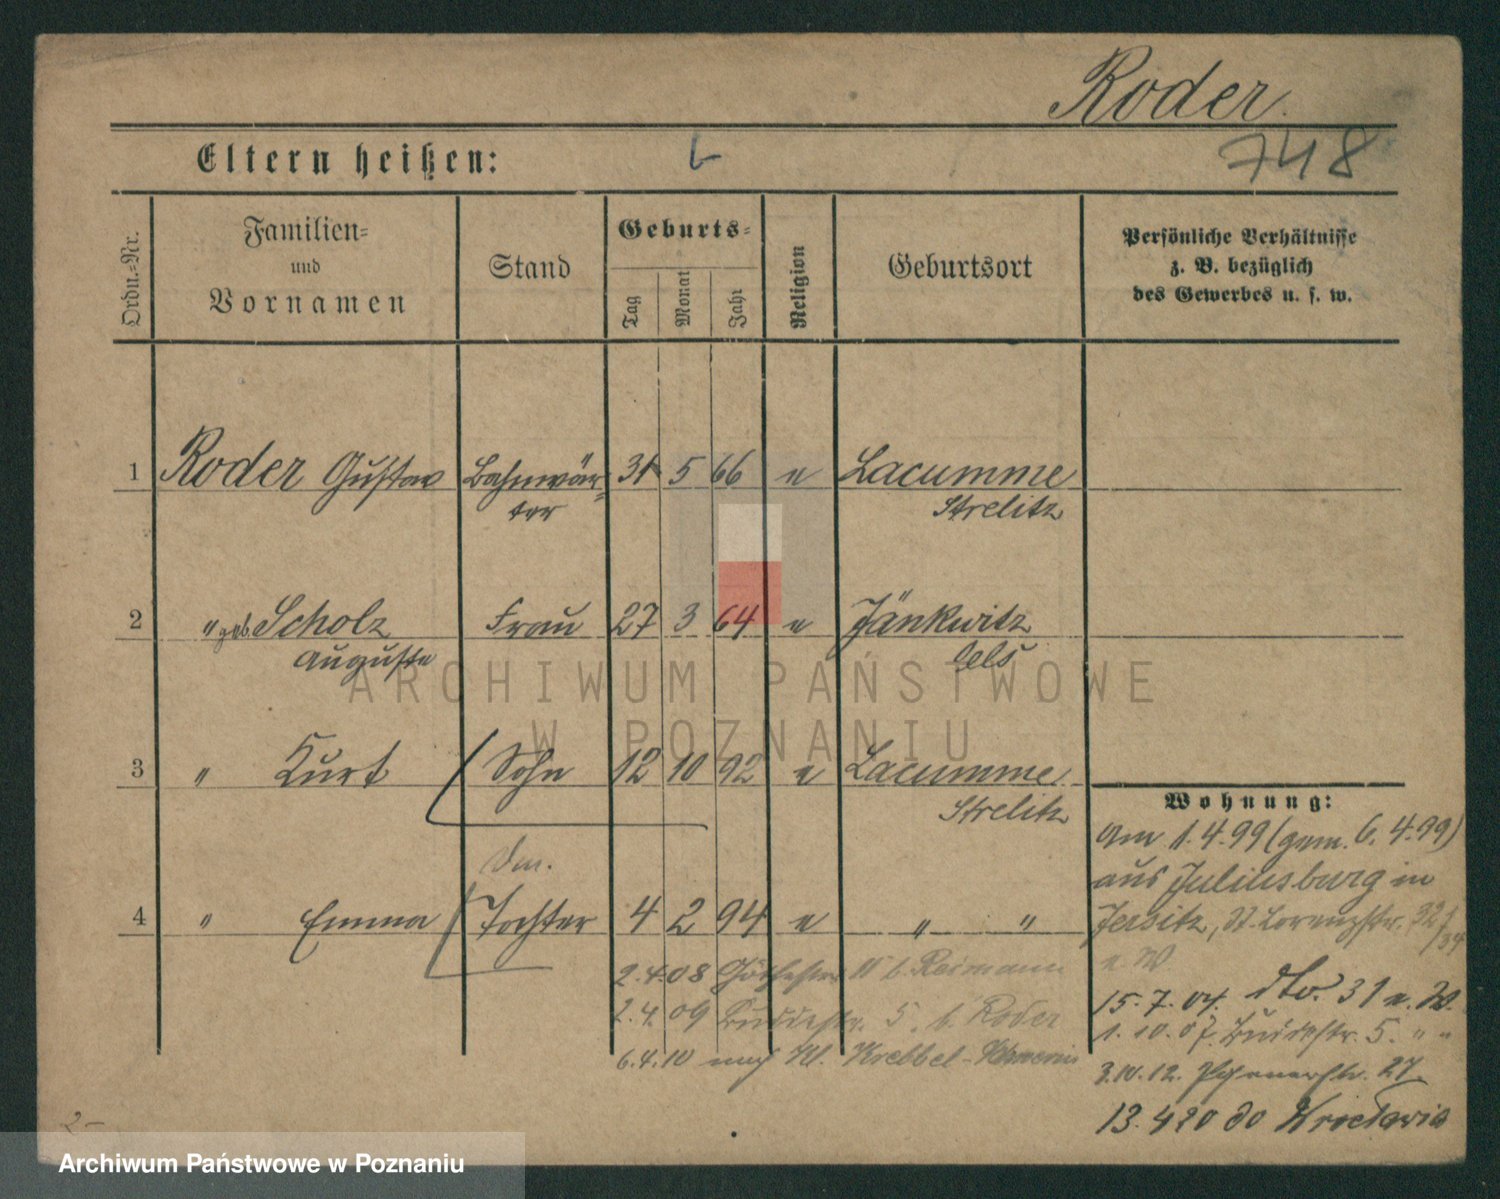 Roder
748
Eltern heißen:
Ordn.=Nr.
Familien=
und
Vornamen
Stand
Geburts=
Tag
Monat
Jahr
Religion
Geburtsort
Persönliche Verhältnisse
z. B. bezüglich
des Gewerbes u. s. w.
1 Roder Gustav Bahnwär= 31 5 66 e Lacumme
ter Strelitz
2 " geb. Scholz Frau 27 3 64 e Jänkwitz
Auguste Oels
3 " Kurt Sohn 12 10 92 e Lacumme
Strelitz
4 " Emma Tochter 4 2 94 e " "
2.4.08 11 b. Reimann
2.4.09 5. b. Roder
6.4.10 nach Kl.
Wohnung:
Am 1.4.99 (gem. 6.4.99)
aus Juliusburg in
Jersitz, St. Lorenzstr. 32/34
v. W
15.7.04. dto. 31 v. W.
1.10.07. Buddestr. 5. " "
3.10.12. 27
13.4 20 do Wrocławia
2-
ARCHIWUM PAŃSTWOWE
W POZNANIU
Archiwum Państwowe w Poznaniu